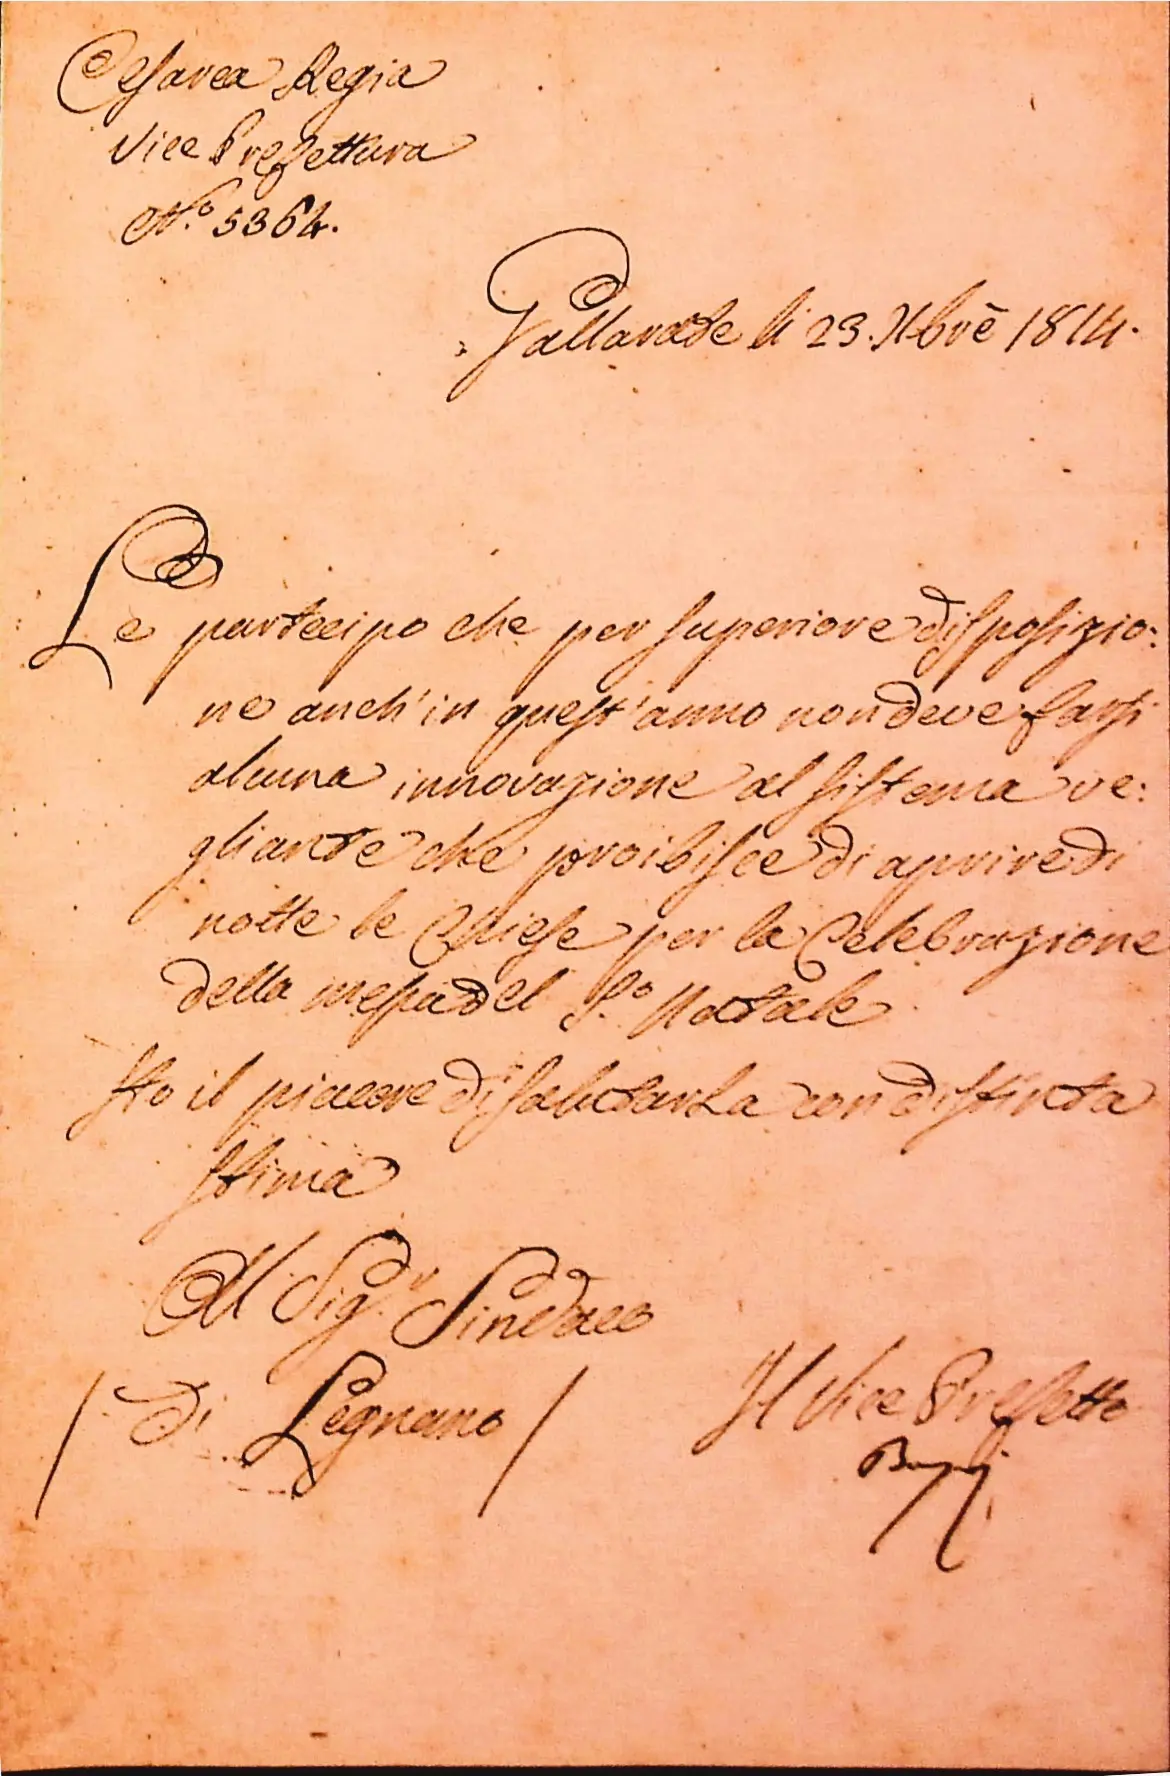 Cesarea Regia
Vice Prefettura
N.º 5364.
Gallarate li 23. Xbrē 1814.
Le partecipo che per superiore disposizio:
ne anch'in quest'anno non deve farsi
alcuna innovazione al sistema ve:
gliante che proibisce di aprire di
notte le Chiese per la Celebrazione
della messa del S.º Natale
Ho il piacere di salutarLa con distinta
stima
Al Sig.r Sindaco
/ Di Legnano /
Il Vice Prefetto